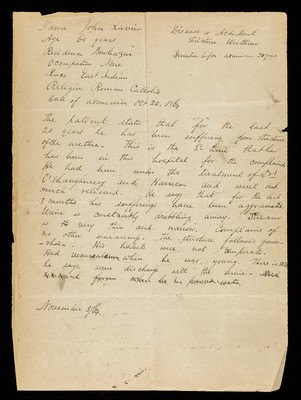 Name John Xavier
Age 60 years
Residence "Bowbazar"
Occupation None
Race East Indian
Religion Roman Catholic
Date of admission Oct 22, 1869
Disease or Accident
Stricture Urethrae
Duration before admission 20 years
The patient states that for the last
20 years he has been suffering from stricture
of the uretha. This is the time that he
has been in this hospital for the complaint
He had been under the treatment of
O'Shaughnessy and and went out
much relieved. He says that for the last
3 months his sufferings have been aggravated
Urine is constantly dribbling away. Stream
is very thin and narrow. Complains of
no other uneasiness. The stricture follows gono-
-rhoea. His habits were not temperate.
Had when he was young. There is still
he says some discharge with the urine.
November 5/69.